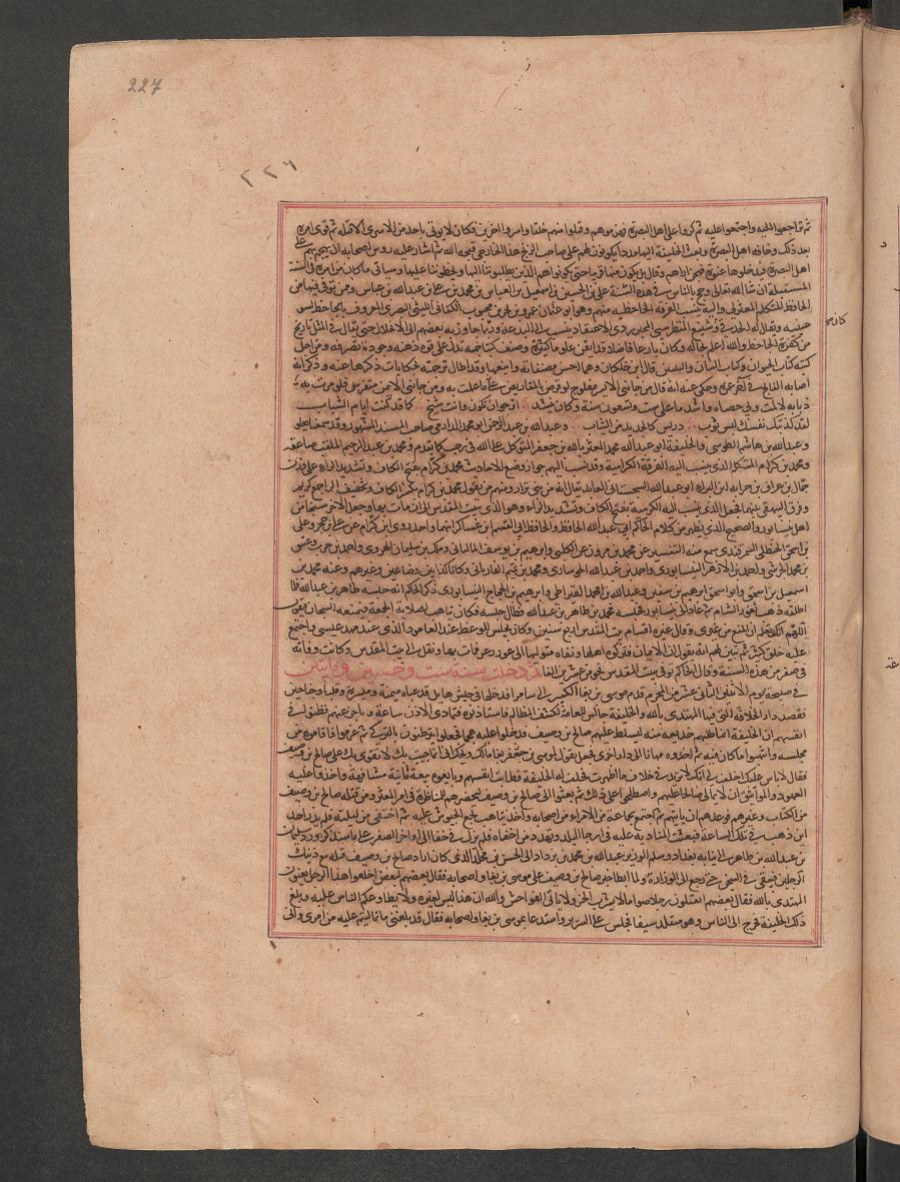 227
٢٢٦
ثم تراجعوا اليه واجتمعوا عليه ثم كروا على اهل البصرة فهزموهم وقتلوا منهم خلقا واسروا اخرين فكان لا يوتى باحد من الاسرى الا قتله ثم قوى امره
بعد ذلك وخافه اهل البصرة وبعث الخليفة اليها مددا ليكونون لهم على صاحب الزنج هذا الخارجي قبحه الله ثم اشار عليه روس اصحابه ان يهجم بهم على
اهل البصرة فيدخلوها عنوة فهجن اراهم وقال بل نكون منها قريبا حتى يكونوا هم الذين يطلبوننا اليها ويخطبوننا عليها وسياتي ما كان من امره في السنة
المستقبلة ان شا الله تعالى وحج بالناس في هذه السنة على بن الحسين بن اسمعيل بن العباس بن محمد بن على بن عبد الله بن عباس وممن توفي فيها من
كان سي
الجاحظ المتكلم المعتزلي واليه ينسب الفرقة الجاحظية منهم وهو ابو عثمان عمرو بن بحر بن محبوب الكناني الليثي البصري المعروف بالجاحظ لسو
عينيه ويقال له الحدقي وشنيع المنظر سيئ المخبر ردي الاعتقاد ينسب الى البدعة وربما جاوز به بعضهم الى الانحلال حتى يقال في المثل يا ويح
من كفره الجاحظ والله اعلم بحاله وكان بارعا فاضلا قد اتقن علوما كثيرة وصنف كتبا جمة تدل على قوة ذهنه وجودة تصرفه ومن اجل
كتبه كتاب الحيوان وكتاب البيان والتبيين قال ابن خلكان وهما احسن مصنفاته وامتعها وقد اطال ترجمته بحكايات ذكرها عنه وذكر انه
اصابه الفالج في اخر عمره وحكى عنه انه قال من جانبي الايسر مفلوج لو قرض بالمقاريض ما علمت به ومن جانبي الايمن منقرس فلو مرت به
ذبابة لالمت وبي حصاه واشد ما على ست وتسعون سنة وكان ينشد اترجو ان تكون وانت شيخ كما قد كنت ايام الشباب
لقد كذبتك نفسك ليس ثوب دريس كالجديد من الثياب وعبد الله بن عبد الرحمن ابو محمد الدارمي صاحب المسند المشهور وقد سمعناه بعلو
وعبد الله بن هاشم الطوسي والخليفة ابو عبد الله محمد المعتز بالله بن جعفر المتوكل على الله في رجب كما تقدم ومحمد بن عبد الرحيم الملقب صاعقة
ومحمد بن كرام المتكلم الذي ينسب اليه الفرقة الكرامية وقد نسب اليهم جواز وضع الاحاديث محمد بن كرام بفتح الكاف وتشديد الراء على وزن
جمال بن عراف بن حرابه ابن البراء ابو عبد الله السجستاني العابد يقال انه من بني نزار ومنهم من يقول محمد بن كرام بكسر الكاف وتخفيف الراء جمع كريم
وفرق البيهقي بينهما فجعل الذي ينسب اليه الكرامية بفتح الكاف وتشديد الراء وهو الذي سكن بيت المقدس الى ان مات بها وجعل الاخر شيخا من
اهل نيسابور والصحيح الذي يظهر من كلام الحاكم ابي عبد الله الحافظ والحافظ ابي القسم ابن عساكر انهما واحد روى ابن كرام عن على بن حجر وعلى
بن اسحق الحنظلي السمرقندي سمع منه التفسير عن محمد بن مروان عن الكلبي وابرهيم بن يوسف الماكياني وملك بن سليمان الهروي واحمد بن حرب وعتيق
بن محمد الحرشي واحمد بن الازهر النيسابوري واحمد بن عبد الله الجويباري ومحمد بن تميم الفاريابي وكانا كذابين وضاعين وغيرهم وعنه محمد بن
اسمعيل بن اسحق وابو اسحق ابرهيم بن سفين وعبد الله بن محمد القيراطي وابرهيم بن الحجاج النيسابوري ذكر الحاكم انه حبسه طاهر بن عبد الله فلما
اطلقه ذهب الى ثغور الشام ثم عاد الى نيسابور فحبسه محمد بن طاهر بن عبد الله فطال حبسه فكان يتاهب لصلاة الجمعة فيمنعه السجان فيقول
اللهم انك تعلم ان المنع من غيري وقال غيره اقام ببيت المقدس اربع سنين وكان يجلس للوعظ عند العامود الذي عند مهد عيسى واجتمع
عليه خلق كثير ثم تبين لهم انه يقول ان الايمان قول فتركه اهلها ونفاه متوليها الى غور زغر فمات بها ونقل الى بيت المقدس وكانت وفاته
في صفر من هذه السنة وقال الحاكم توفي ببيت المقدس ثم دخلت سنة ست وخمسين ومايتين
في صبيحة يوم الاثنين الثاني عشر من المحرم قدم موسى بن بغا الكبير الى سامرا فدخلها في جيش هايل قد عباه ميمنة وميسرة وقلبا وجناحين
فقصد دار الخلافة التي فيها المهتدي بالله والخليفة جالس للعامة لكشف المظالم فاستاذنوه فتمادى الاذن ساعة وتاخر عنهم فظنوا في
انفسهم ان الخليفة انما طلبهم خديعة منه ليسلط عليهم صالح بن وصيف فدخلوا عليه هجما فجعلوا يراطنونهم بالتركي ثم عزموا فاقاموه من
مجلسه وانتهبوا ما كان فيه ثم اخذوه مهانا الى دار اخرى فجعل يقول لموسى بن بغا ما لك ويحك اني انما جيت بك لاتقوى بك على صالح بن وصيف
فقال له موسى لا باس عليك احلف لي انك لا تريد لي خلاف ما اظهرت فحلف له الخليفة فطابت انفسهم وبايعوه بيعة ثانية مشافهة واخذوا عليه
العهود والمواثيق ان لا يمالي صالحا عليهم واصطلحوا على ذلك ثم بعثوا الى صالح بن وصيف ليحضرهم للمناظرة في امر المعتز ومن قتله صالح بن وصيف
من الكتاب وغيرهم فوعدهم ان ياتيهم ثم اجتمع بجماعة من الامراء من اصحابه واخذ يتاهب لجمع الجيوش عليه ثم اختفى من ليلته فلم يدر احد
اين ذهب في تلك الساعة فبعثت المنادية عليه في ارجا البلد وتهدد من اخفاه فلم يزل في خفا الى اواخر صفر على ما سنذكر ورد سليمان
بن عبد الله بن طاهر الى نيابة بغداد وسلم الوزير عبد الله بن محمد بن يزداد الى الحسن بن مخلد الذي كان اراد صالح بن وصيف قتله مع ذينك
الرجلين فبقي في السجن حتى رجع الى الوزارة ولما ابطا خبر صالح بن وصيف على موسى بن بغا واصحابه قال بعضهم لبعض اخلعوا هذا الرجل يعنون
المهتدي بالله فقال بعضهم اتقتلون رجلا صواما لا يشرب الخمر ولا ياتي الفواحش والله ان هذا ليس كغيره ولا يطاوعكم الناس عليه وبلغ
ذلك الخليفة فخرج الى الناس وهو متقلد سيفا فجلس على السرير واستدعا بموسى بن بغا واصحابه فقال قد بلغني ما تمالاتم عليه من امري واني